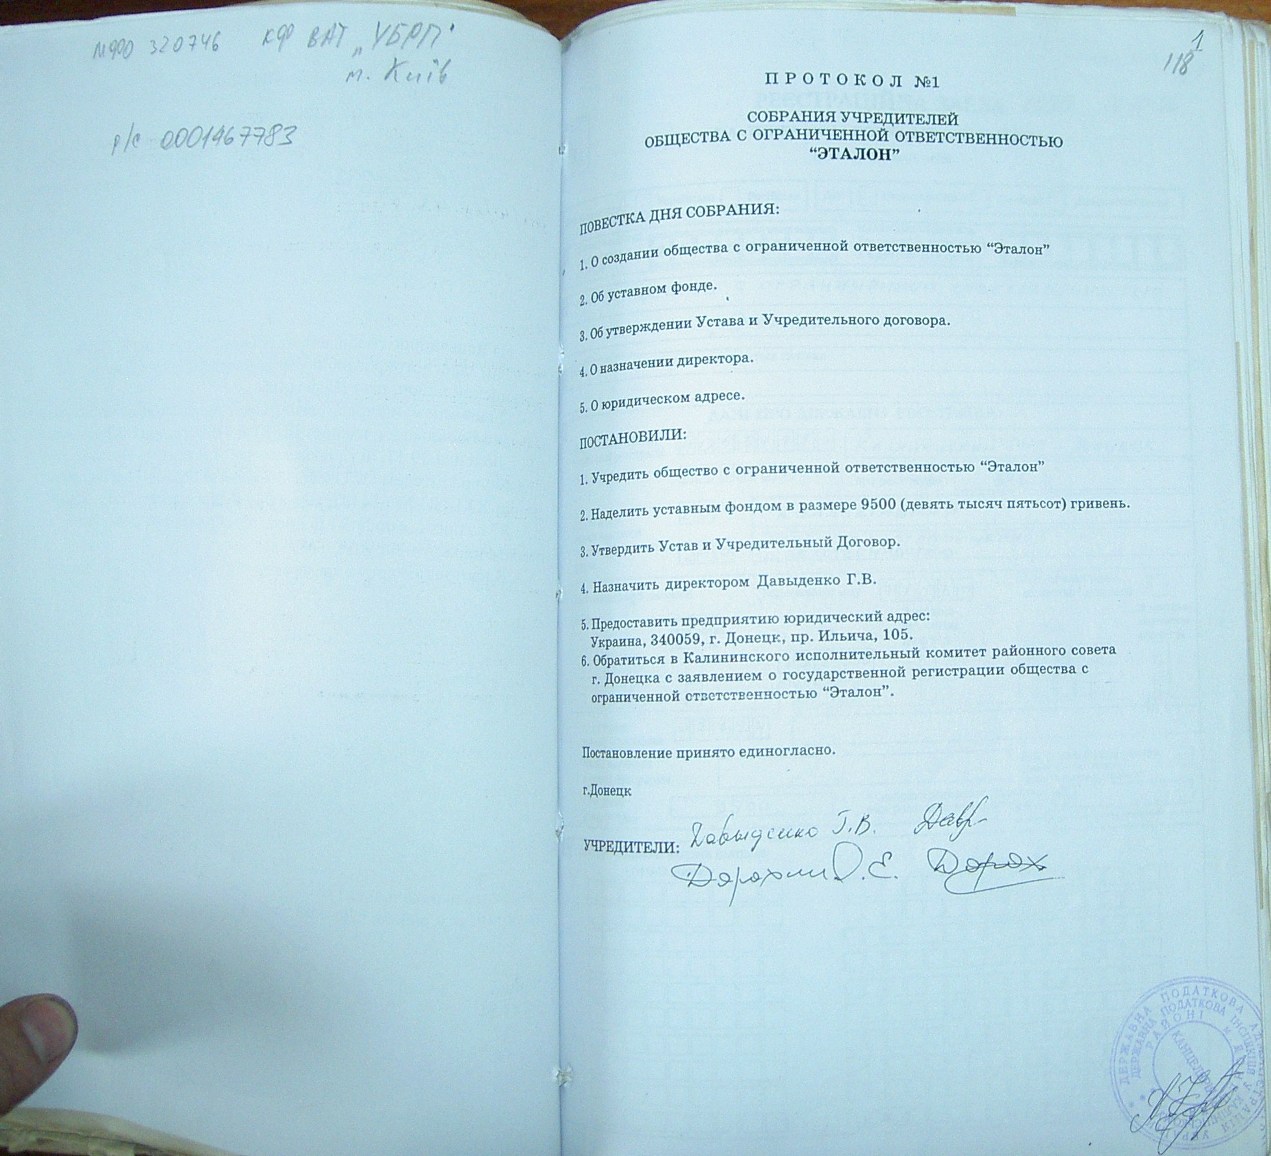 МФО 320746 КФ ВАТ „УБРП"
м. Київ
р/с 0001467783
1
118
ПРОТОКОЛ №1
СОБРАНИЯ УЧРЕДИТЕЛЕЙ
ОБЩЕСТВА С ОГРАНИЧЕННОЙ ОТВЕТСТВЕННОСТЬЮ
“ЭТАЛОН”
ПОВЕСТКА ДНЯ СОБРАНИЯ:
1. О создании общества с ограниченной ответственностью “Эталон”
2. Об уставном фонде.
3. Об утверждении Устава и Учредительного договора.
4. О назначении директора.
5. О юридическом адресе.
ПОСТАНОВИЛИ:
1. Учредить общество с ограниченной ответственностью “Эталон”
2. Наделить уставным фондом в размере 9500 (девять тысяч пятьсот) гривень.
3. Утвердить Устав и Учредительный Договор.
4. Назначить директором Давыденко Г.В.
5. Предоставить предприятию юридический адрес:
Украина, 340059, г. Донецк, пр. Ильича, 105.
6. Обратиться в Калининского исполнительный комитет районного совета
г. Донецка с заявлением о государственной регистрации общества с
ограниченной ответственностью “Эталон”.
Постановление принято единогласно.
г.Донецк
УЧРЕДИТЕЛИ: Давыденко Г.В.
О.Е.
ДЕРЖАВНА ПОДАТКОВА АДМІНІСТРАЦІЯ
ДЕРЖАВНА ПОДАТКОВА ІНСПЕКЦІЯ У
РАЙОНІ
КАНЦЕЛЯРІЯ